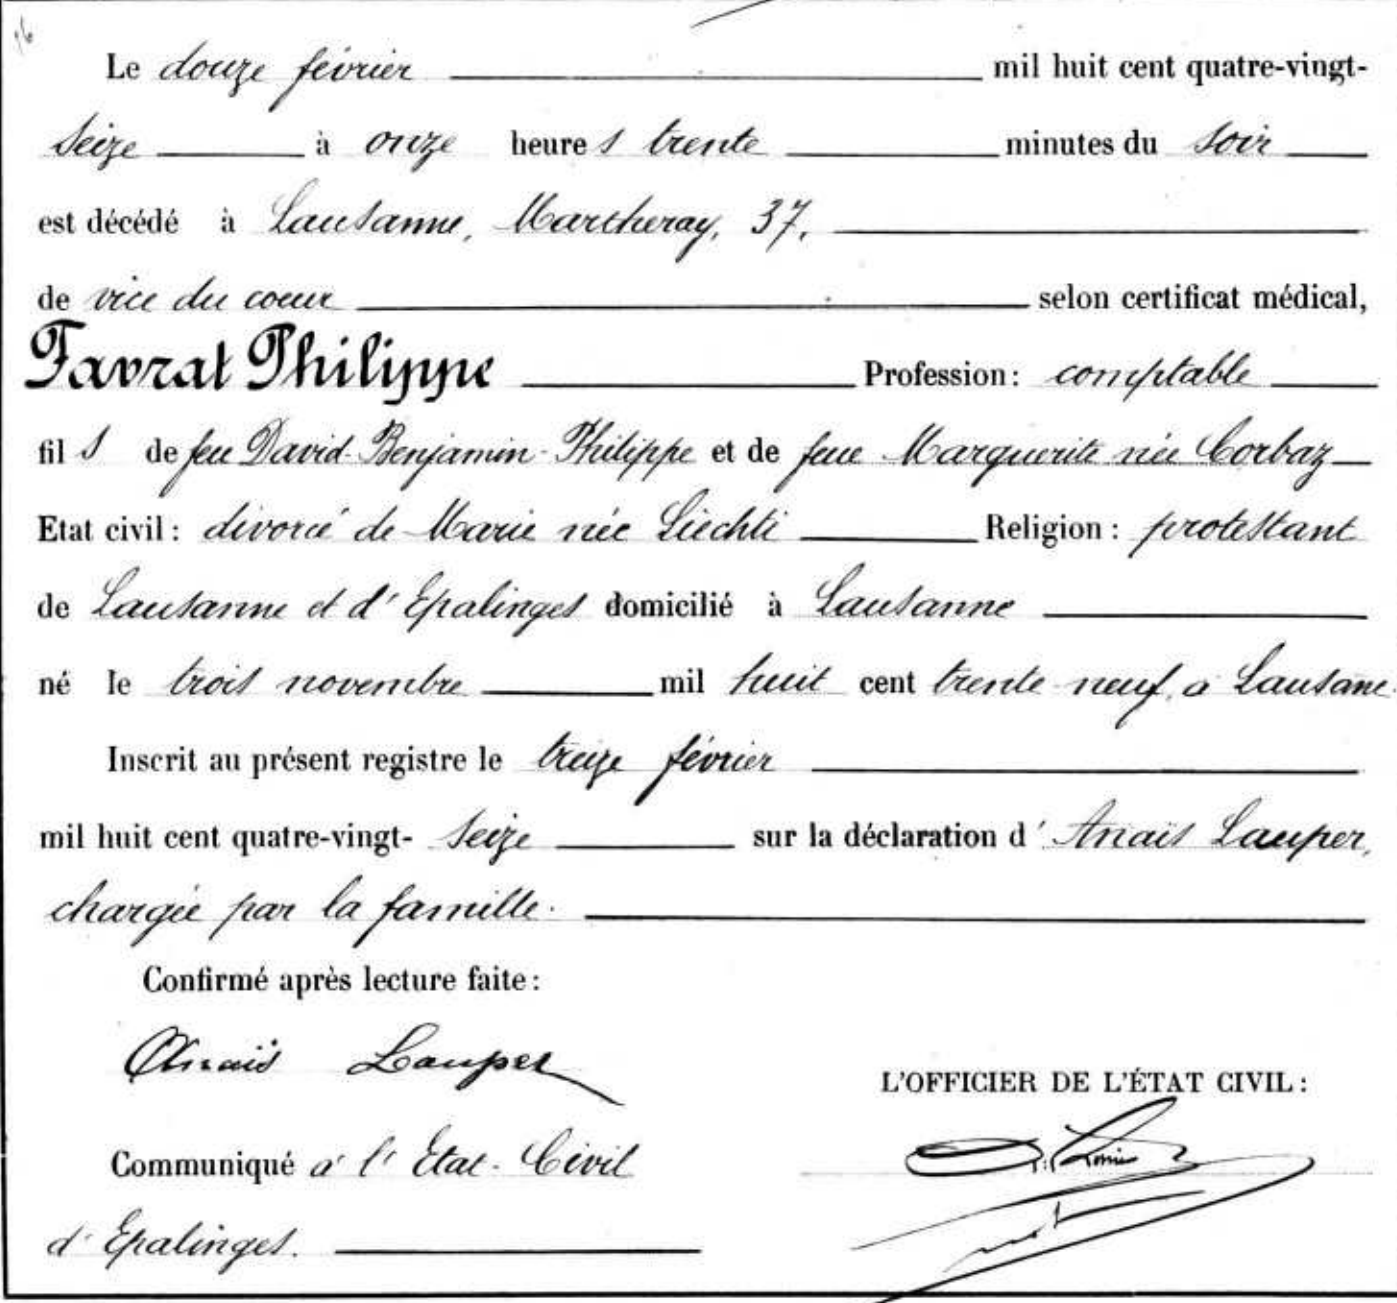 16
Le douze février mil huit cent quatre-vingt-
seize à onze heures trente minutes du soir
est décédé à Lausanne, Martheray, 37,
de vice du coeur selon certificat médical,
Favrat Philippe Profession: comptable
fils de feu David-Benjamin-Philippe et de feue Marguerite née Corbaz
Etat civil: divorcé de Marie née Liechti Religion: protestant
de Lausanne et d'Epalinges domicilié à Lausanne
né le trois novembre mil huit cent trente neuf, à Lausane.
Inscrit au présent registre le treize février
mil huit cent quatre-vingt-seize sur la déclaration d'Anaïs Lauper,
chargée par la famille.
Confirmé après lecture faite:
Anaïs Lauper
L'OFFICIER DE L'ÉTAT CIVIL:
Communiqué à l'Etat-Civil
d'Epalinges.